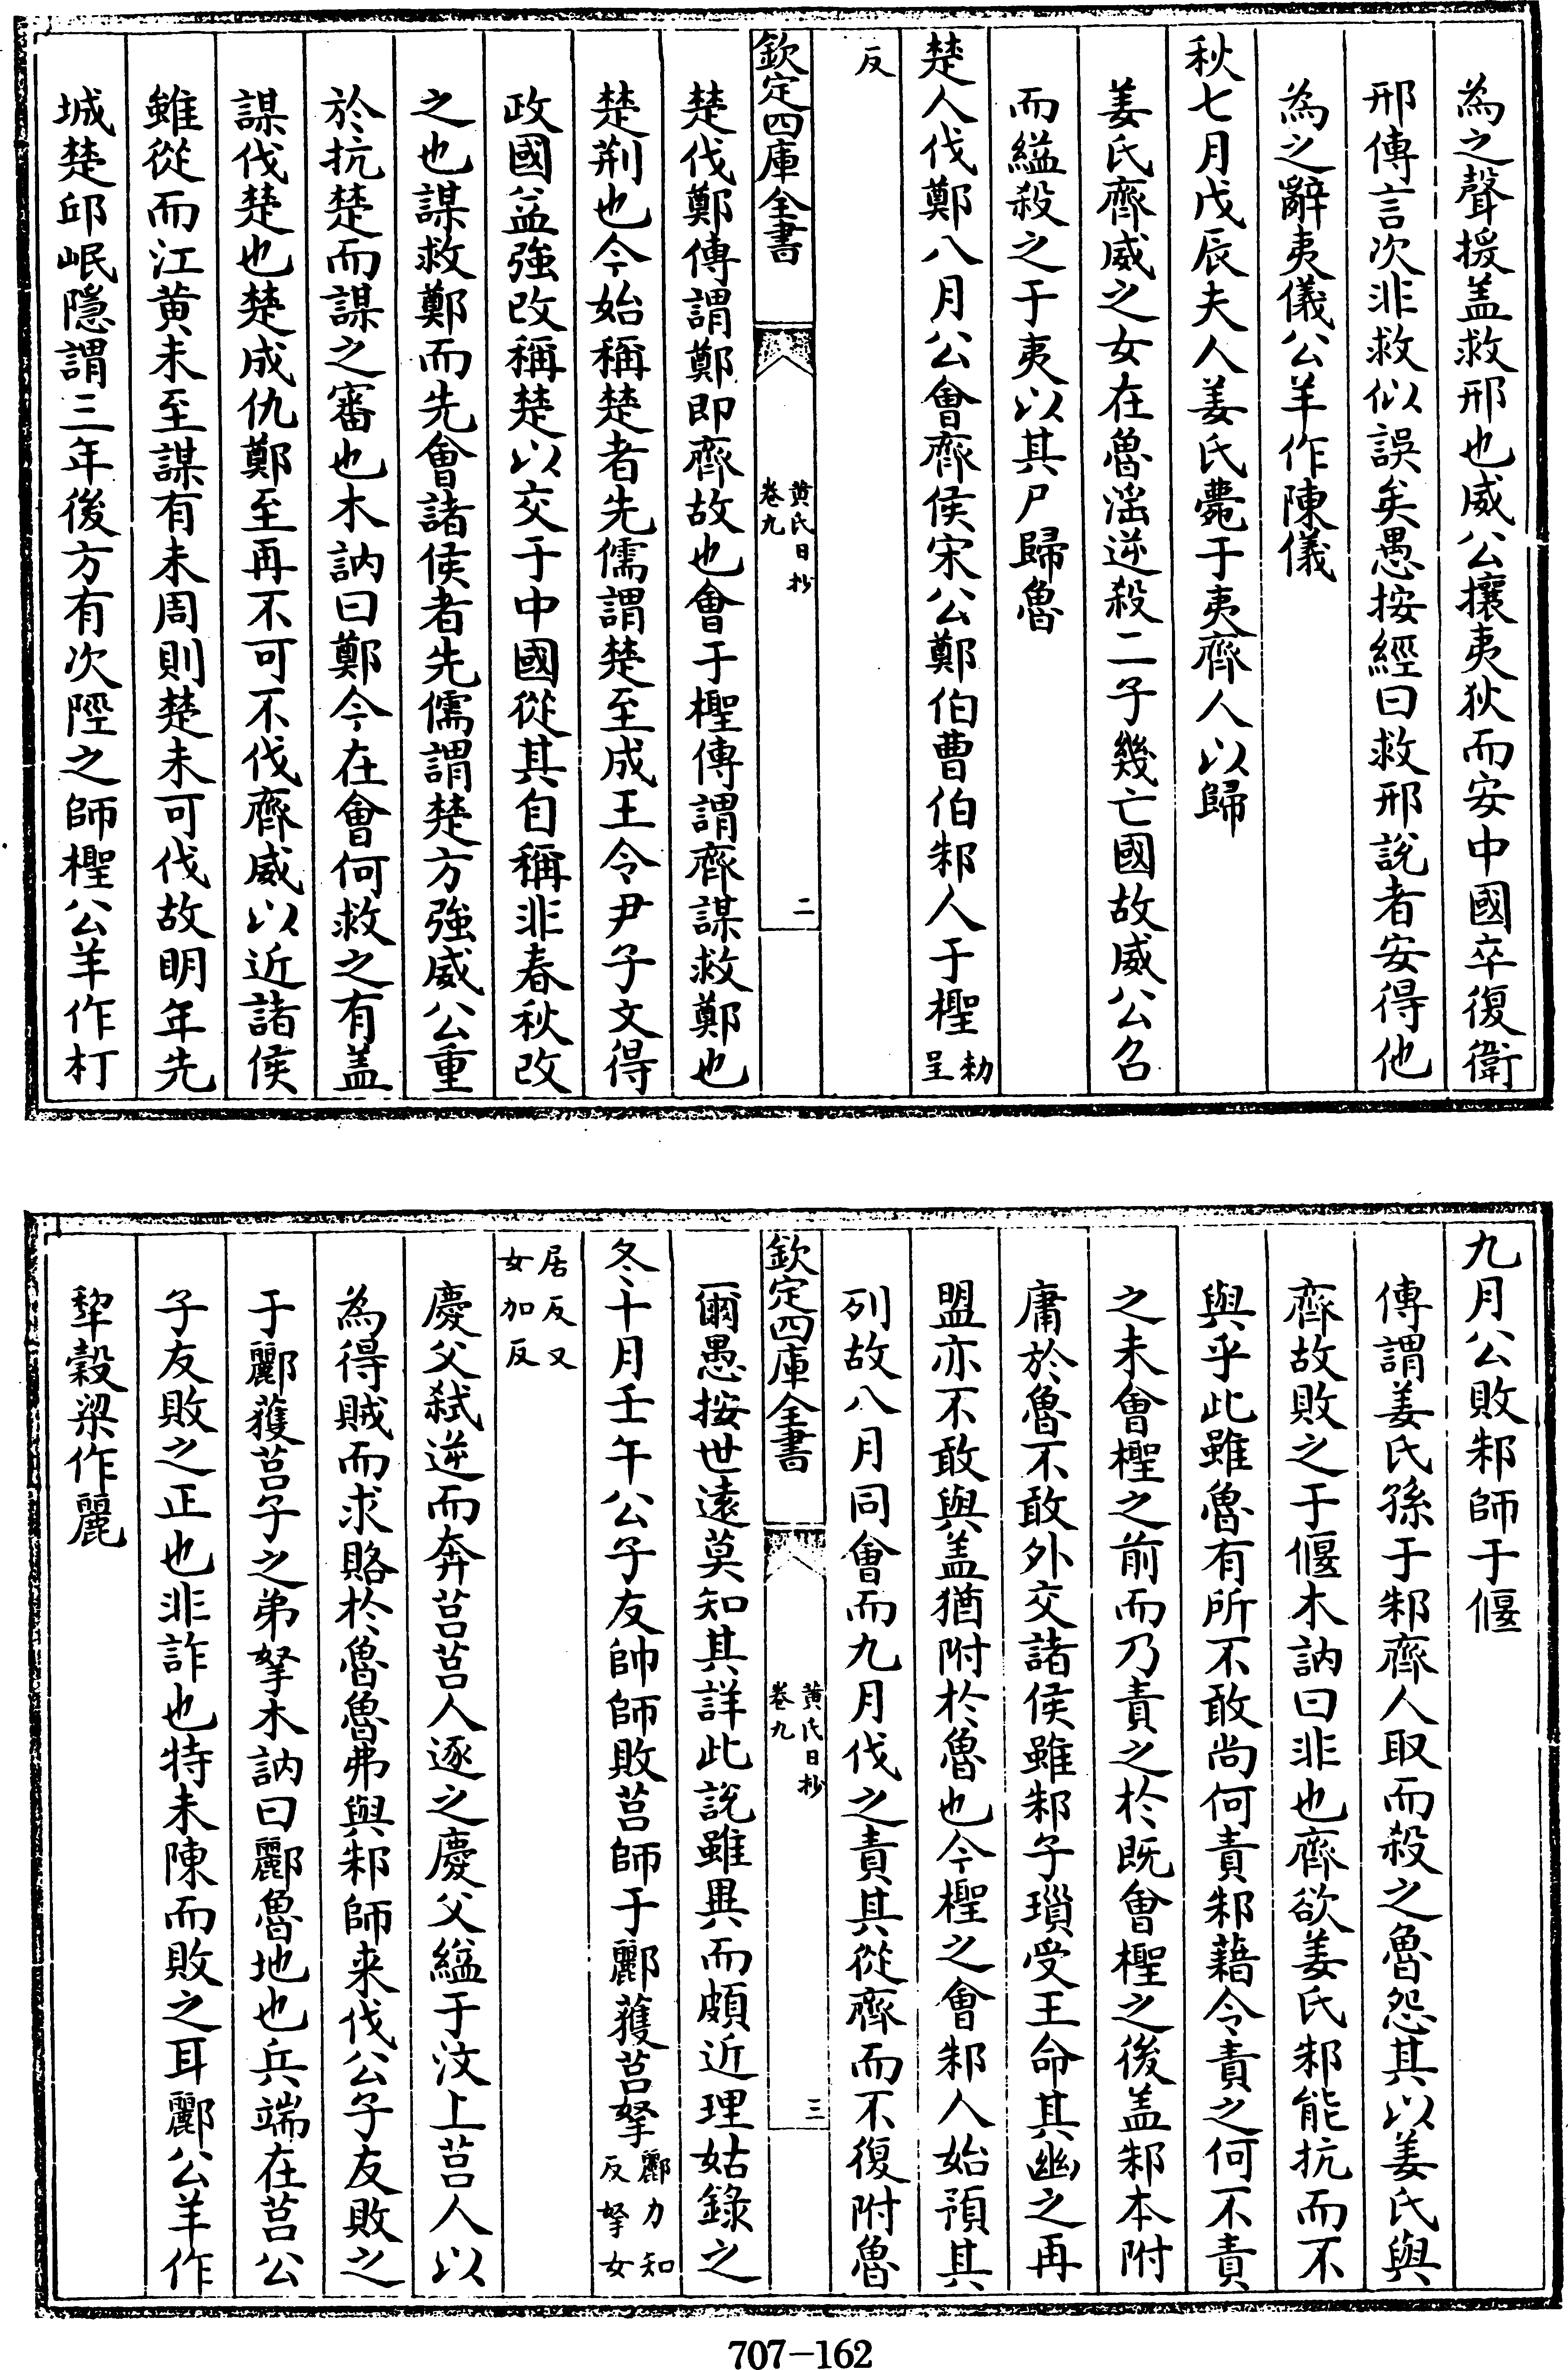 為之聲援盖救邢也威公攘夷狄而安中國卒復衛
邢傳言次非救似誤矣愚按經曰救邢說者安得他
為之辭夷儀公羊作陳儀
秋七月戊辰夫人姜氏薨于夷齊人以歸
姜氏齊威之女在魯滛逆殺二子幾亡國故威公召
而縊殺之于夷以其尸歸魯
楚人伐鄭八月公會齊侯宋公鄭伯曹伯邾人于檉勑呈
反
欽定四庫全書
黄氏日抄
卷九
二
楚伐鄭傳謂鄭即齊故也會于檉傳謂齊謀救鄭也
楚荆也今始稱楚者先儒謂楚至成王令尹子文得
政國益強改稱楚以交于中國從其自稱非春秋改
之也謀救鄭而先會諸侯者先儒謂楚方強威公重
於抗楚而謀之審也木訥曰鄭今在會何救之有盖
謀伐楚也楚成仇鄭至再不可不伐齊威以近諸侯
雖從而江黄未至謀有未周則楚未可伐故明年先
城楚邱岷隱謂三年後方有次陘之師檉公羊作朾
九月公敗邾師于偃
傳謂姜氏孫于邾齊人取而殺之魯怨其以姜氏與
齊故敗之于偃木訥曰非也齊欲姜氏邾能抗而不
與乎此雖魯有所不敢尚何責邾藉令責之何不責
之未會檉之前而乃責之於既會檉之後盖邾本附
庸於魯不敢外交諸侯雖邾子瑣受王命其幽之再
盟亦不敢與盖猶附於魯也今檉之會邾人始預其
列故八月同會而九月伐之責其從齊而不復附魯
欽定四庫全書
黄氏日抄
卷九
三
爾愚按世遠莫知其詳此說雖異而頗近理姑錄之
冬十月壬午公子友帥師敗莒師于酈獲莒拏酈力知反拏女
居反又女加反
慶父弑逆而奔莒莒人逐之慶父縊于汶上莒人以
為得賊而求賂於魯魯弗與邾師来伐公子友敗之
于酈獲莒子之弟拏木訥曰酈魯地也兵端在莒公
子友敗之正也非詐也特未陳而敗之耳酈公羊作
犂穀梁作麗
707-162